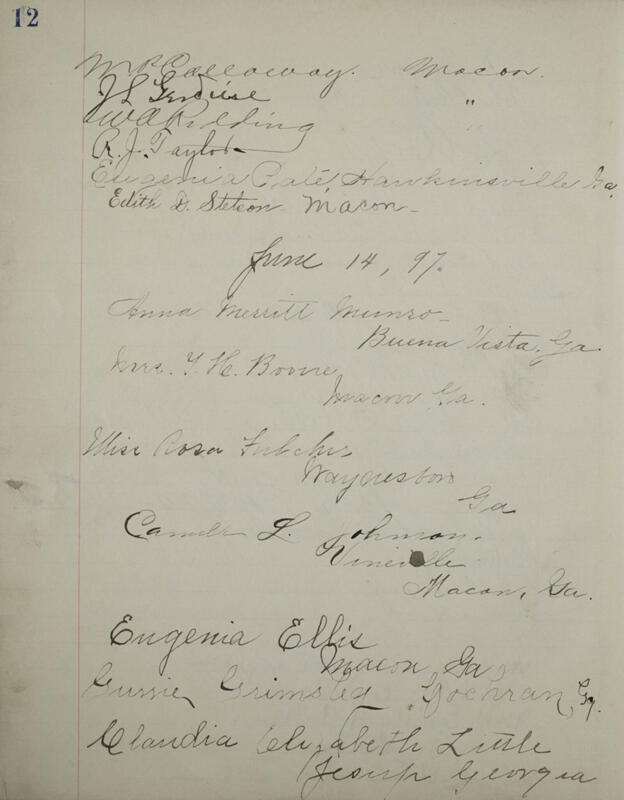 12
M P Callaway. Macon.
J L Gerdine "
R. J. Taylor
Eugenia Paté Hawkinsville Ga.
Edith D. Stetson - Macon -
June 14, 97.
Anna Merritt Munro -
Buena Vista, Ga.
Mrs. T. H. Boone,
Macon Ga.
Miss Rosa
Waynesboro
Ga
Camille L. Johnson.
Vineville
Macon, Ga.
Eugenia Ellis
Macon, Ga,
Gussie Grimsted Cochran, Ga.
Claudia Elizabeth Little
Jesup Georgia